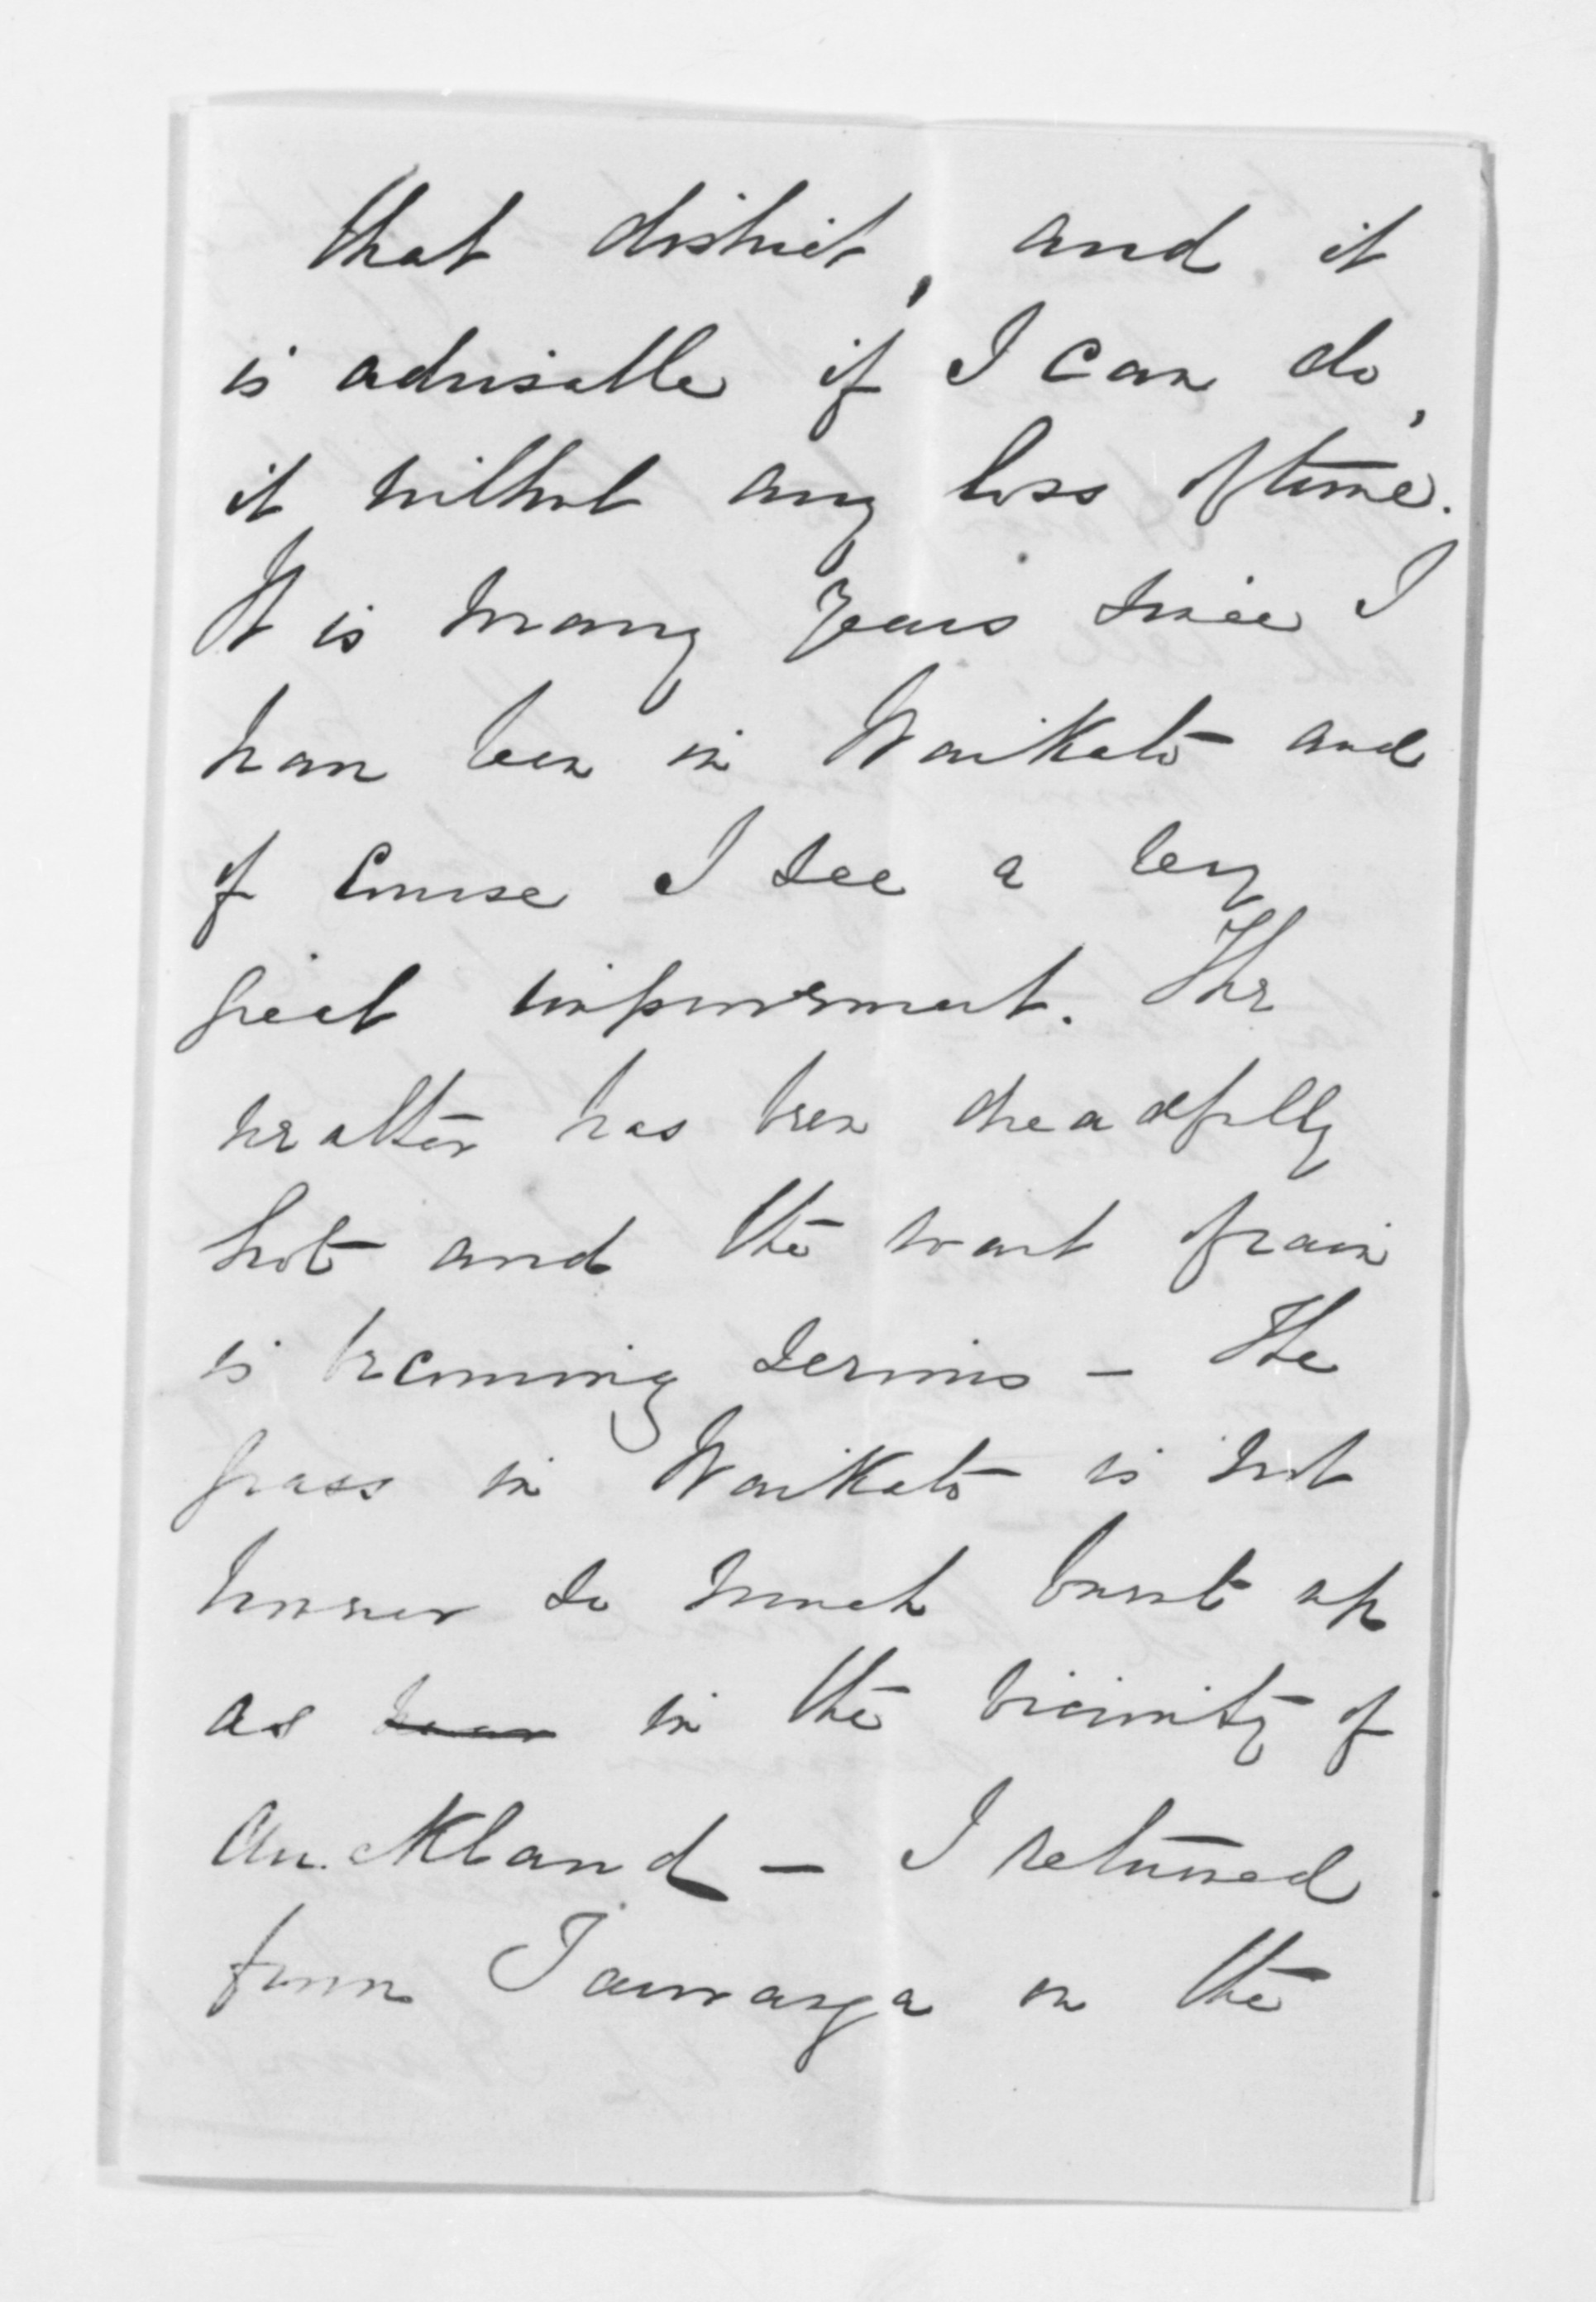 that district, and it
is advisable if I can do,
it without any loss of time.
It is many years since I
have been in Waikato and
of course I see a very
great improvement. The
weather has been dreadfully
hot and the want of rain
is becoming serious - The
grass in Waikato is not
however so much burnt up
as in the vicinity of
Auckland - I returned
from Tauranga in the